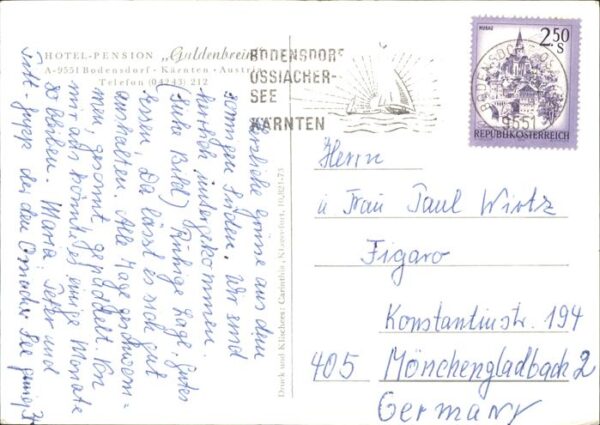 HOTEL-PENSION „Guldenbrein
A-9551 Bodensdorf - Kärnten - Austria
Telefon (04243) 212
BODENSDORF
OSSIACHER-
SEE
KÄRNTEN
MURAU
2.50
S
REPUBLIK ÖSTERREICH
BODENSDORF
9551
Herzliche Grüsse aus dem
sonnigen Süden. Wir sind
herrlich untergekommen.
(siehe Bild) Ruhige Lage, gutes
Essen. Da lässt es sich gut
aushalten. Alle Tage geschwom=
men, gesonnt gepaddelt. Von
mir aus könnte es einige Monate
so bleiben. Maria, Peter und
Druck und Klischees: Carinthia, Klagenfurt, 10.021-73
Herrn
u Frau Paul Wirtz
Figaro
Konstantinstr. 194
405 Mönchengladbach 2
Germany